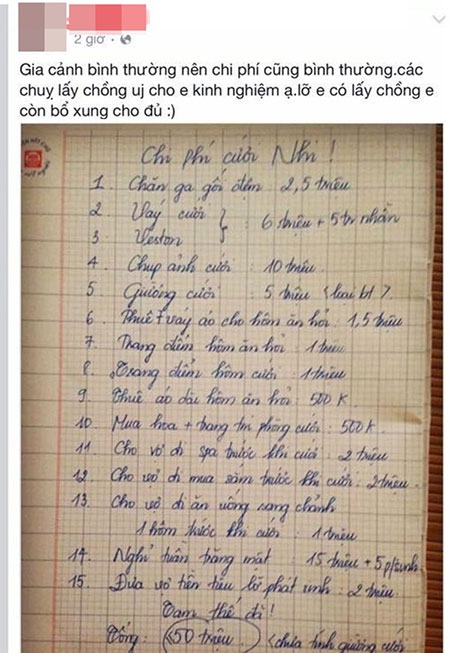 2 giờ
Gia cảnh bình thường nên chi phí cũng bình thường.các
chuỵ lấy chồng uj cho e kinh nghiệm ạ.lỡ e có lấy chồng e
còn bổ xung cho đủ :)
Chi phí cưới Nhi !
1. Chăn ga gối đệm 2,5 triệu
2. Váy cưới
} : 6 triệu + 5tr nhẫn
3. Veston
4. Chụp ảnh cưới : 10 triệu
5. Giường cưới : 5 triệu < loại bt >
6. Thuê + váy áo cho hôm ăn hỏi : 1,5 triệu
7. Trang điểm hôm ăn hỏi : 1 triệu
8. Trang điểm hôm cưới : 1 triệu
9. Thuê áo dài hôm ăn hỏi : 500 K
10. Mua hoa + trang trí phòng cưới : 500K
11. Cho vợ đi spa trước khi cưới : 2 triệu
12. Cho vợ đi mua sắm trước khi cưới : 2 triệu
13. Cho vợ đi ăn uống sang chảnh
1 hôm trước khi cưới : 1 triệu
14. Nghỉ tuần trăng mật : 15 triệu + 5 p/sinh
15. Đưa vợ tiền tiêu lỡ phát sinh : 2 triệu
Tạm thế đã !
Tổng : 50 triệu < chưa tính giường cưới